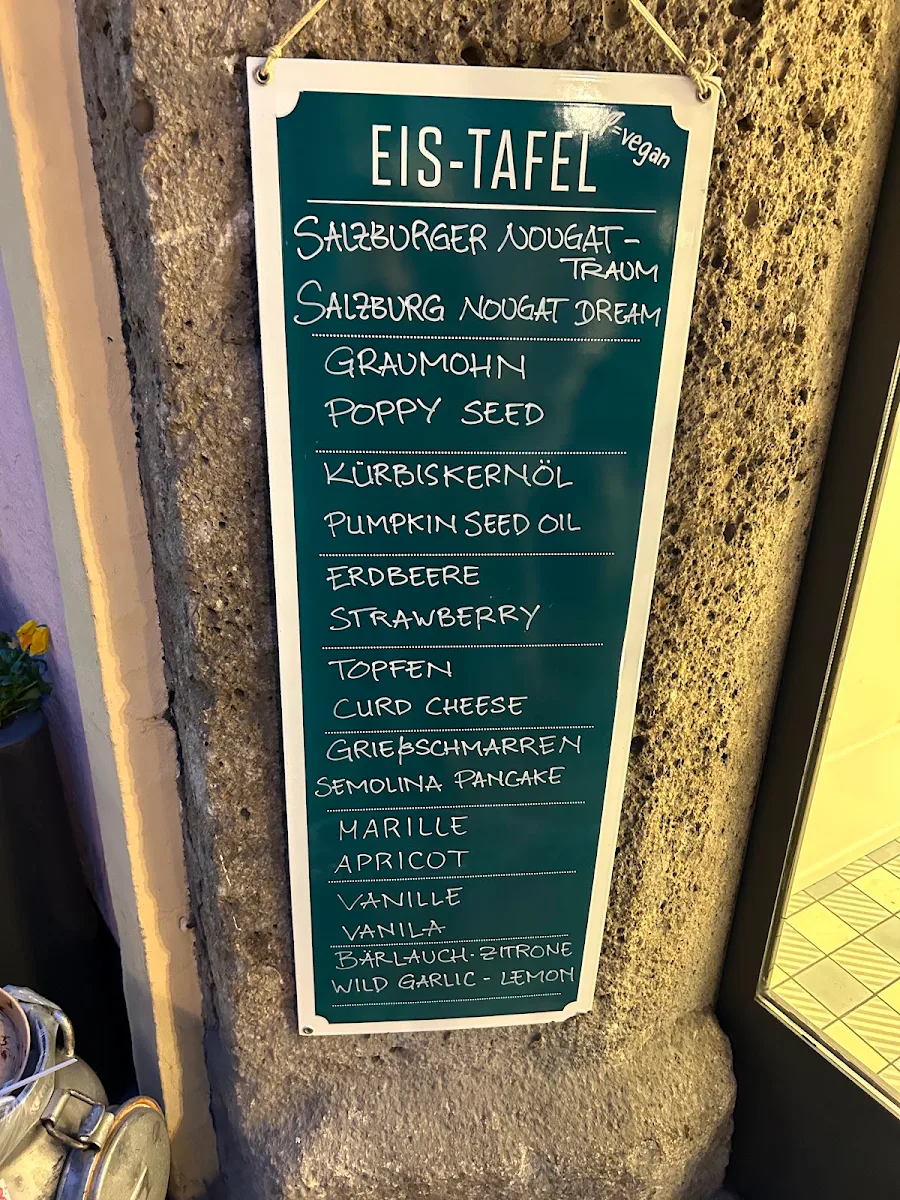 EIS-TAFEL
=vegan
SALZBURGER NOUGAT-
TRAUM
SALZBURG NOUGAT DREAM
GRAUMOHN
POPPY SEED
KÜRBISKERNÖL
PUMPKIN SEED OIL
ERDBEERE
STRAWBERRY
TOPFEN
CURD CHEESE
GRIEßSCHMARREN
SEMOLINA PANCAKE
MARILLE
APRICOT
VANILLE
VANILA
BÄRLAUCH-ZITRONE
WILD GARLIC - LEMON